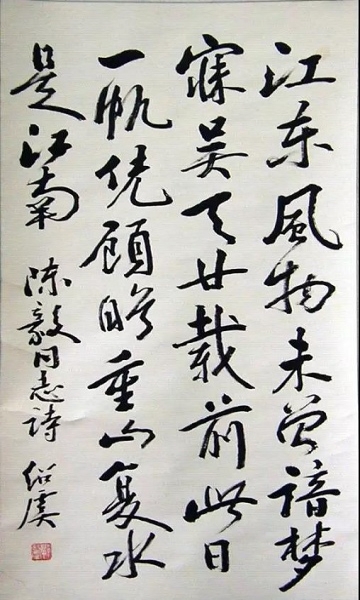 江东風物未曾谙梦
寐吴天廿載前此日
一帆凭顾盼重山复水
是江南 陈毅同志詩 绍虞